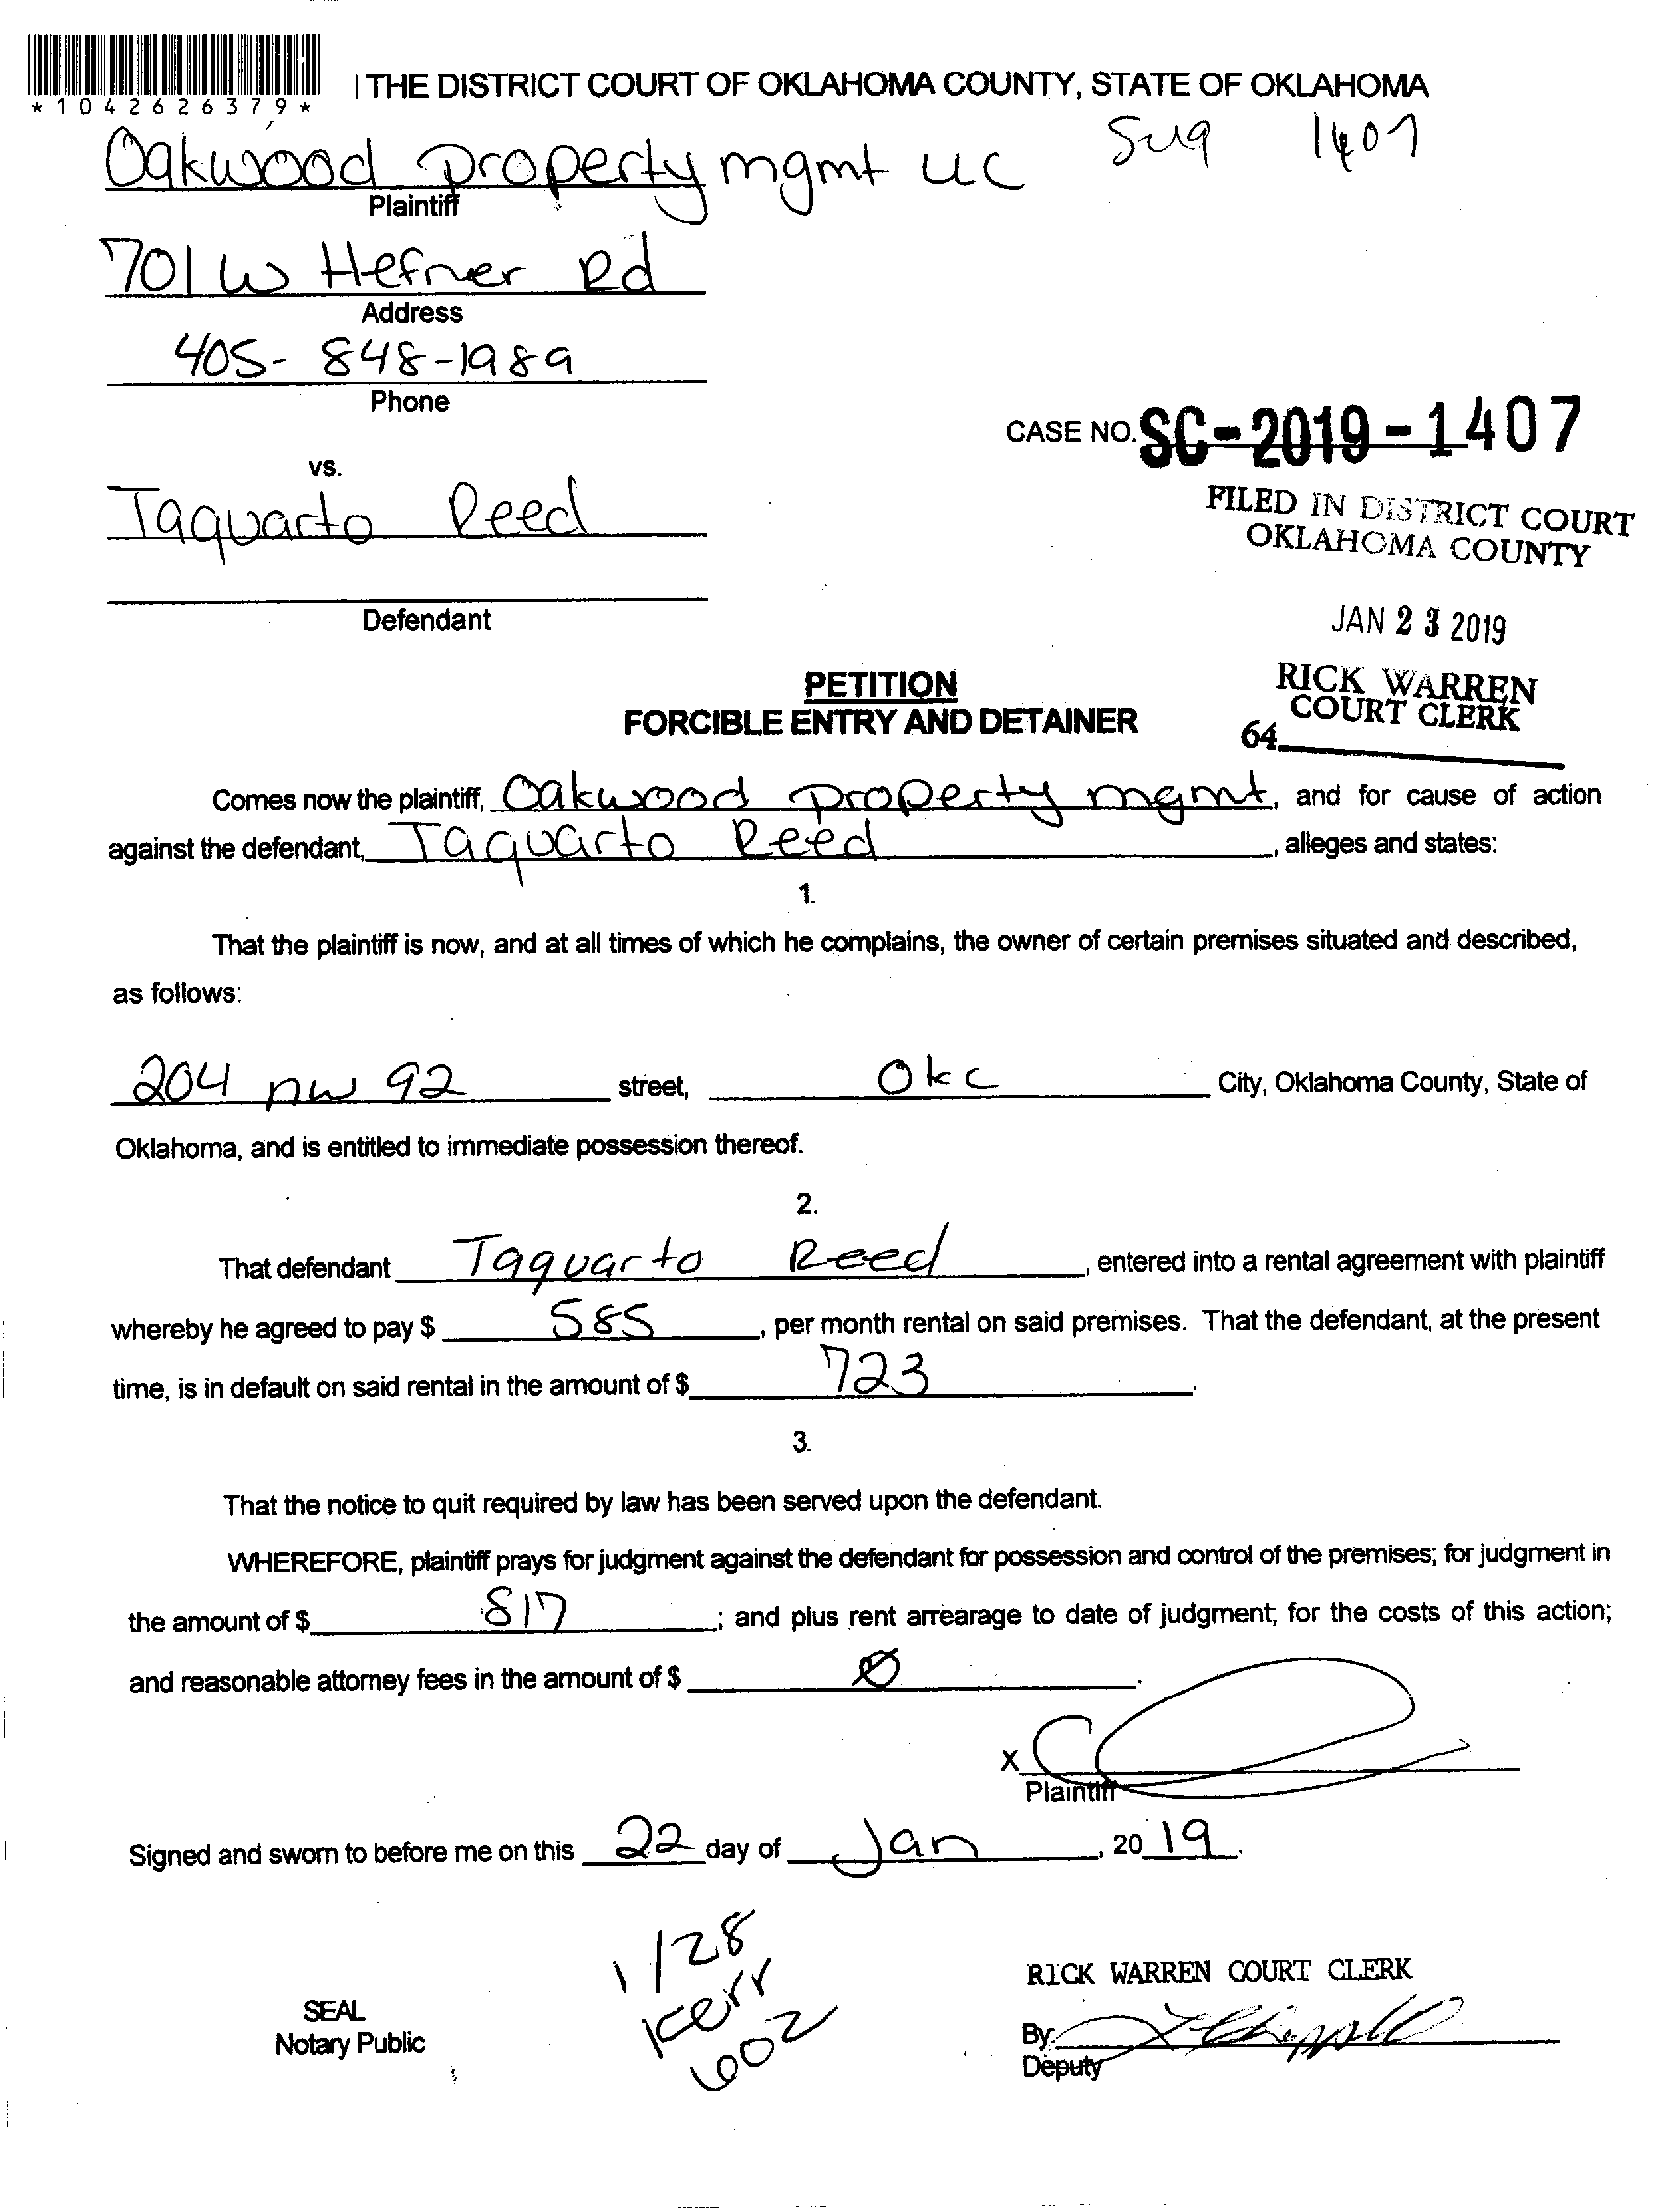 *1042626379*
THE DISTRICT COURT OF OKLAHOMA COUNTY, STATE OF OKLAHOMA
1407
Oakwood property mgmt LLC
Plaintiff
701 W Hefner Rd
Address
405-848-1989
Phone
CASE NO. SC-2019-1407
vs.
FILED IN DISTRICT COURT
OKLAHOMA COUNTY
Taquarto Reed
Defendant
JAN 23 2019
RICK WARREN
COURT CLERK
64
PETITION
FORCIBLE ENTRY AND DETAINER
Comes now the plaintiff, Oakwood property mgmt, and for cause of action
against the defendant, Taquarto Reed, alleges and states:
1.
That the plaintiff is now, and at all times of which he complains, the owner of certain premises situated and described,
as follows:
204 nw 92 street, OKC City, Oklahoma County, State of
Oklahoma, and is entitled to immediate possession thereof.
2.
That defendant Taquarto Reed, entered into a rental agreement with plaintiff
whereby he agreed to pay $ 585, per month rental on said premises. That the defendant, at the present
time, is in default on said rental in the amount of $ 723.
3.
That the notice to quit required by law has been served upon the defendant.
WHEREFORE, plaintiff prays for judgment against the defendant for possession and control of the premises; for judgment in
the amount of $ 817; and plus rent arrearage to date of judgment; for the costs of this action;
and reasonable attorney fees in the amount of $ Ø.
X
Plaintiff
Signed and sworn to before me on this 22 day of Jan, 2019.
1/28
Kerr
602
SEAL
Notary Public
RICK WARREN COURT CLERK
By
Deputy